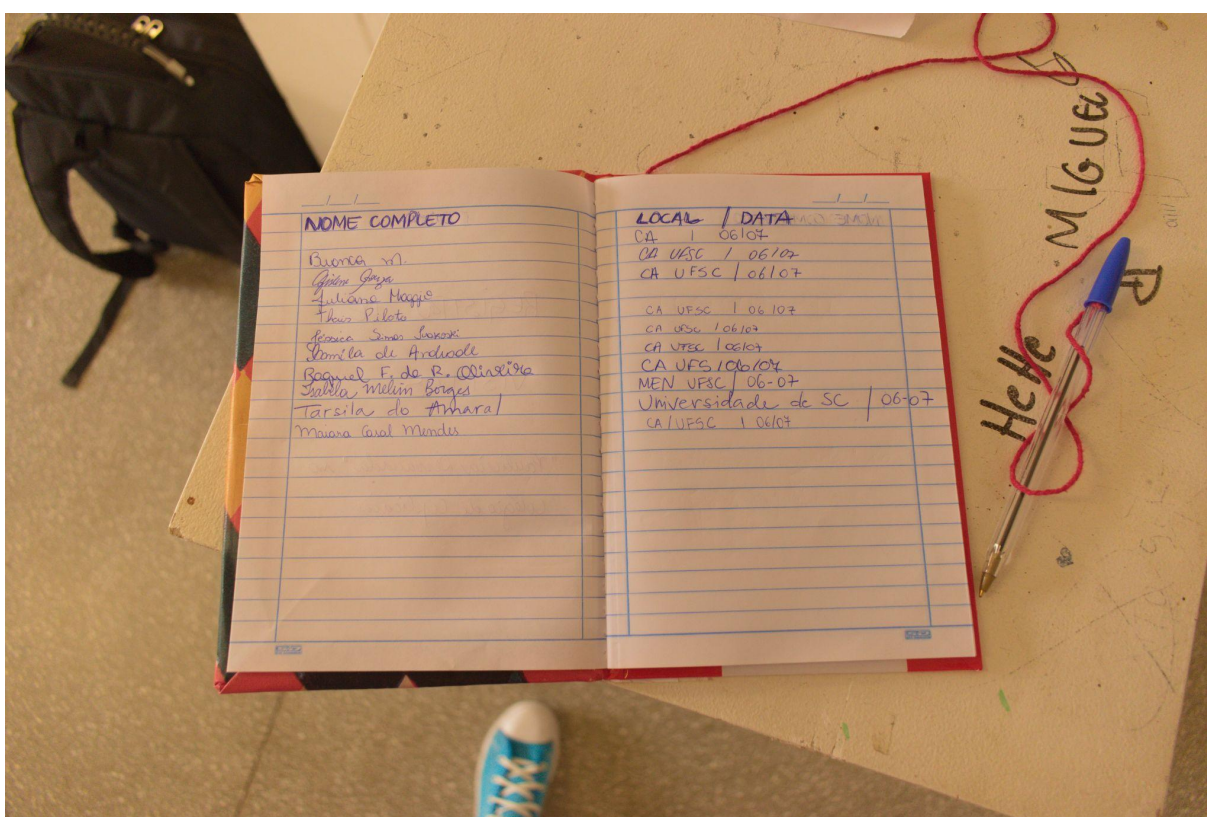 NOME COMPLETO
Bianca M.
Juliana Maggio
Thais Piloto
Jéssica
Camila de Andrade
Raquel F. de R. Oliveira
Isabela Melim Borges
Tarsila do Amaral
Maiara Casal Mendes
LOCAL / DATA
CA / 06/07
CA UFSC / 06/07
CA UFSC / 06/07
CA UFSC / 06/07
CA UFSC / 06/07
CA UFSC / 06/07
CA UFS / 06/07
MEN UFSC / 06-07
Universidade de SC / 06-07
CA/UFSC / 06/07
MIGUEL
HeHe